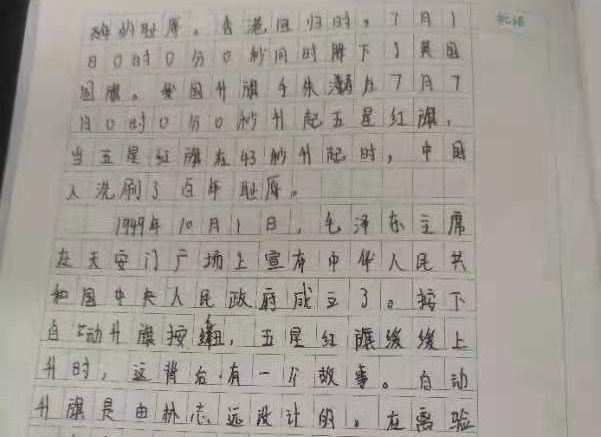 批语
年的耻辱。香港回归时，7月1
日0时0分0秒同时降下了英国
国旗。我国升旗手朱涛在7月7
日0时0分0秒升起五星红旗，
当五星红旗在43秒升起时，中国
人洗刷了百年耻辱。
1949年10月1日，毛泽东主席
在天安门广场上宣布中华人民共
和国中央人民政府成立了。按下
自动升旗按钮，五星红旗缓缓上
升时，这背后有一个故事。自动
升旗是由林志远设计的。在离验